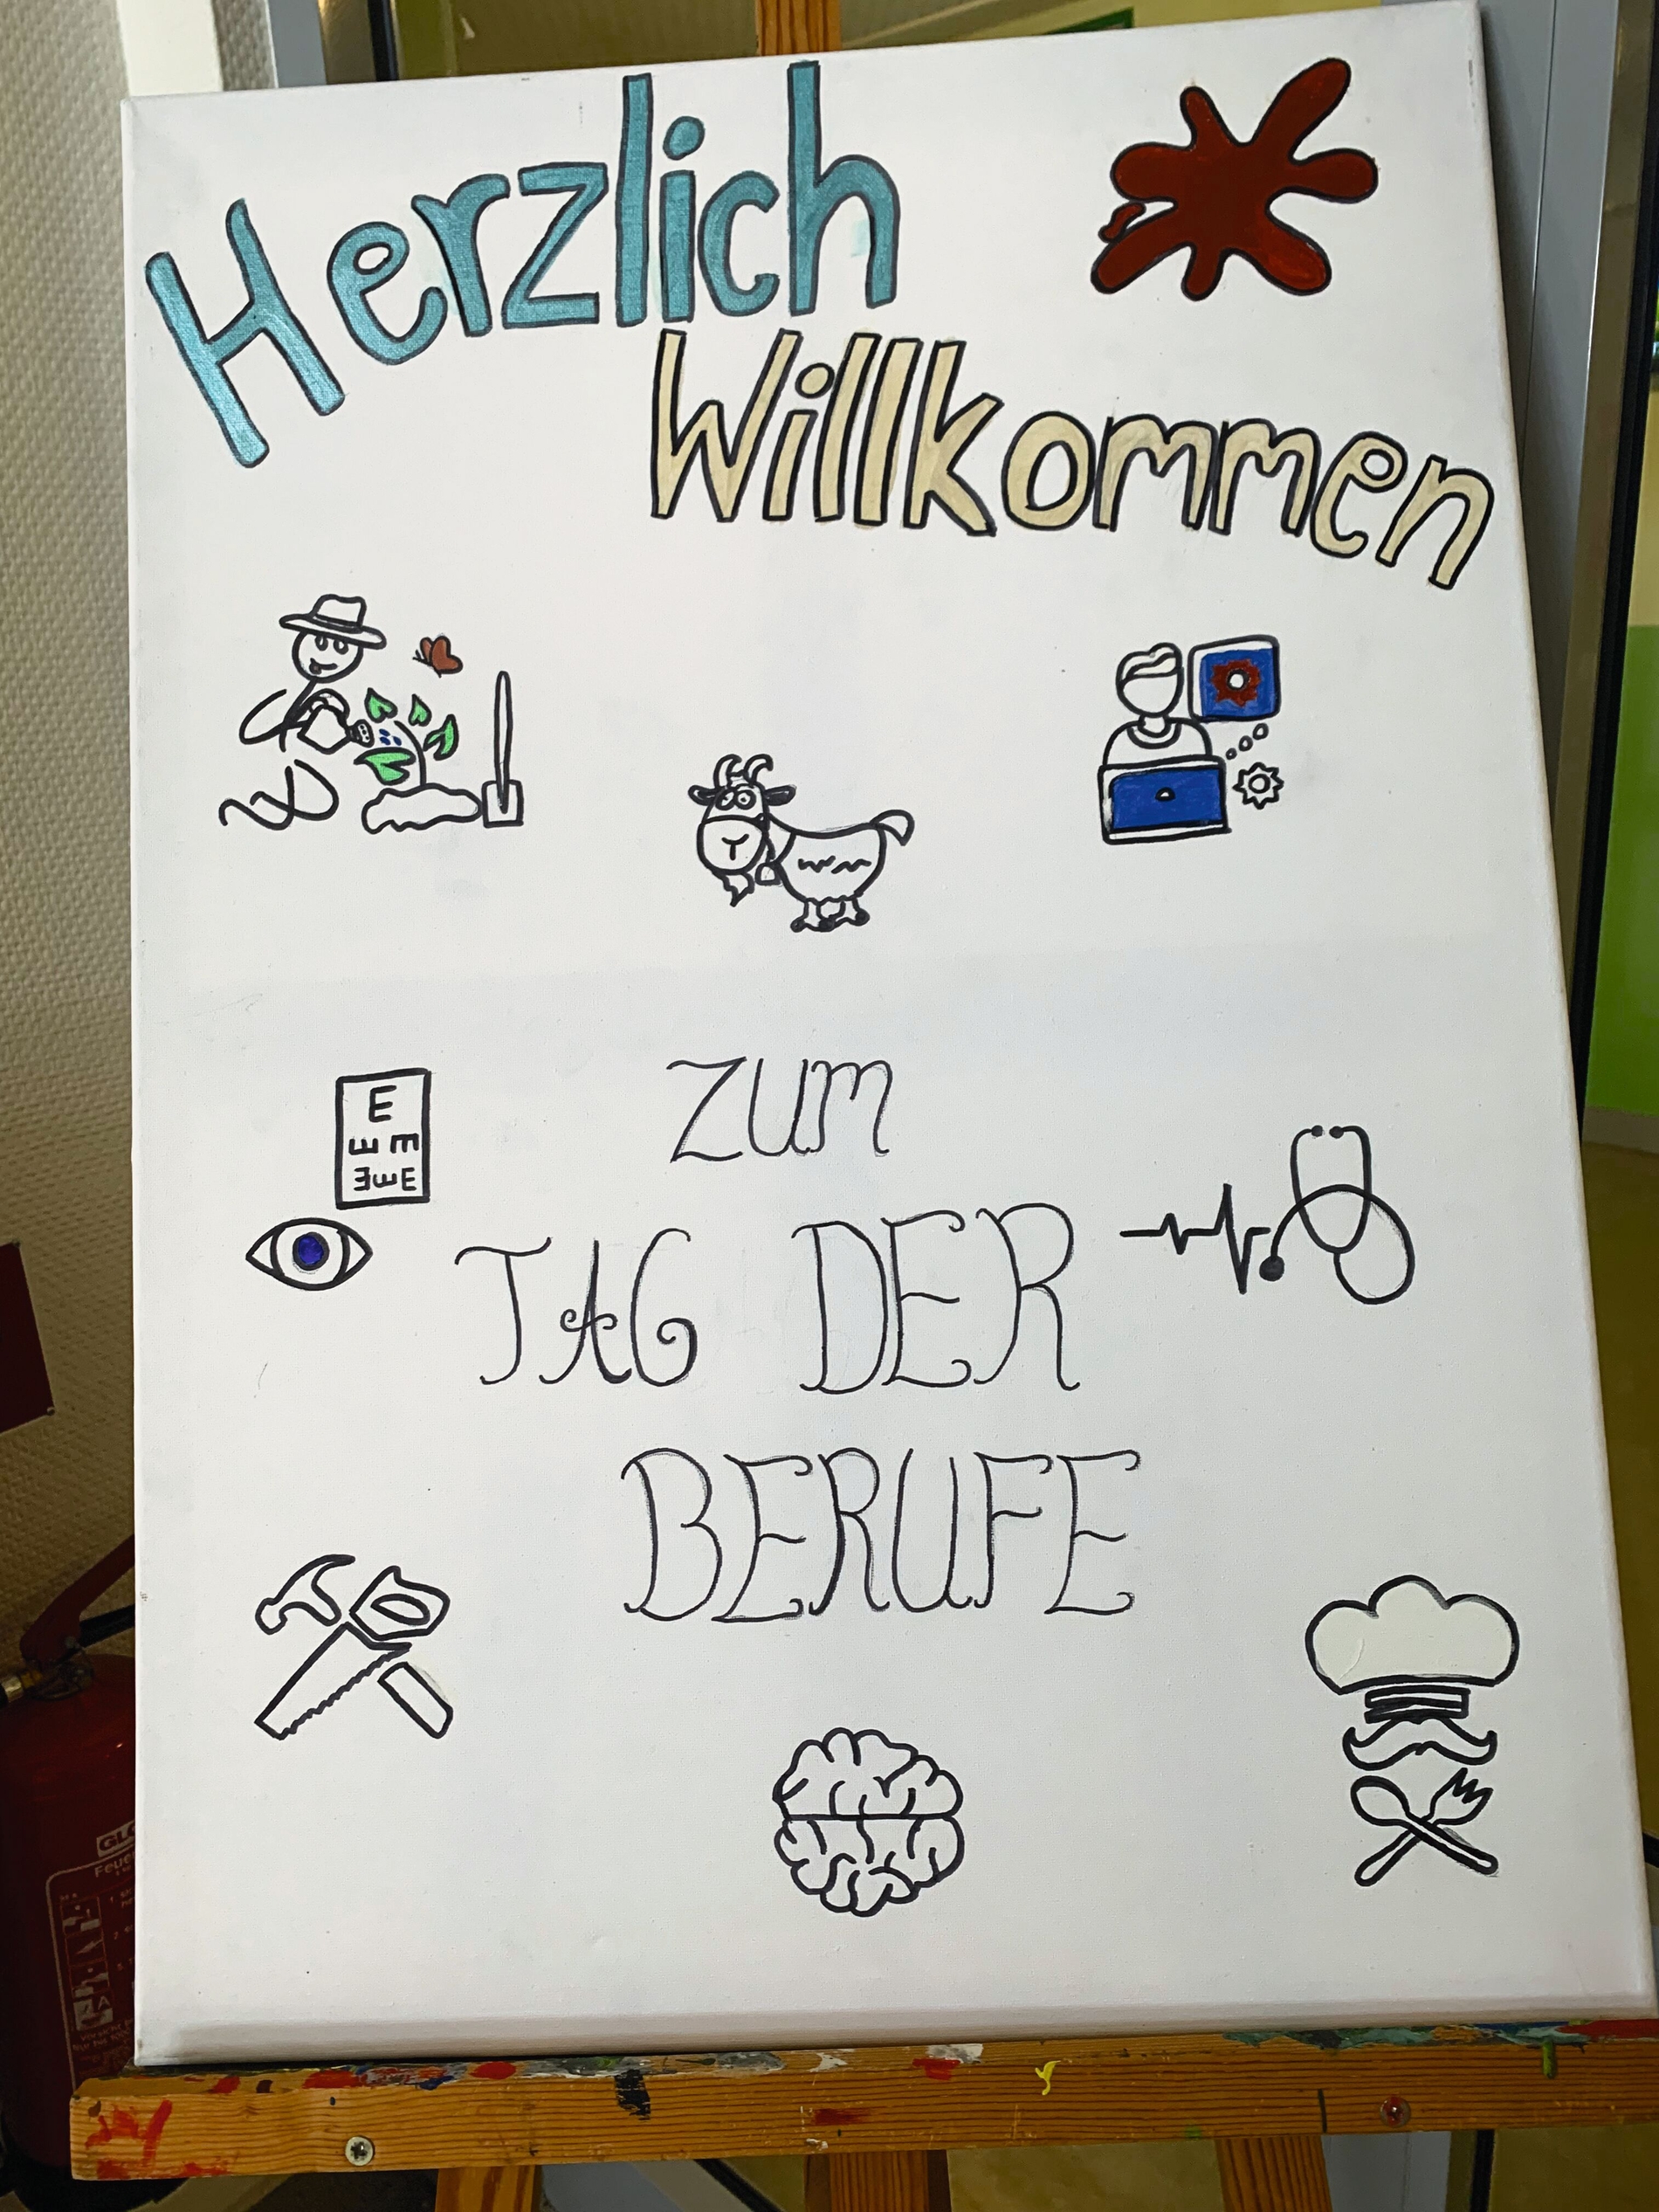 Herzlich
Willkommen
E
E E
E E E
ZUM
TAG DER
BERUFE
GLO
Feue